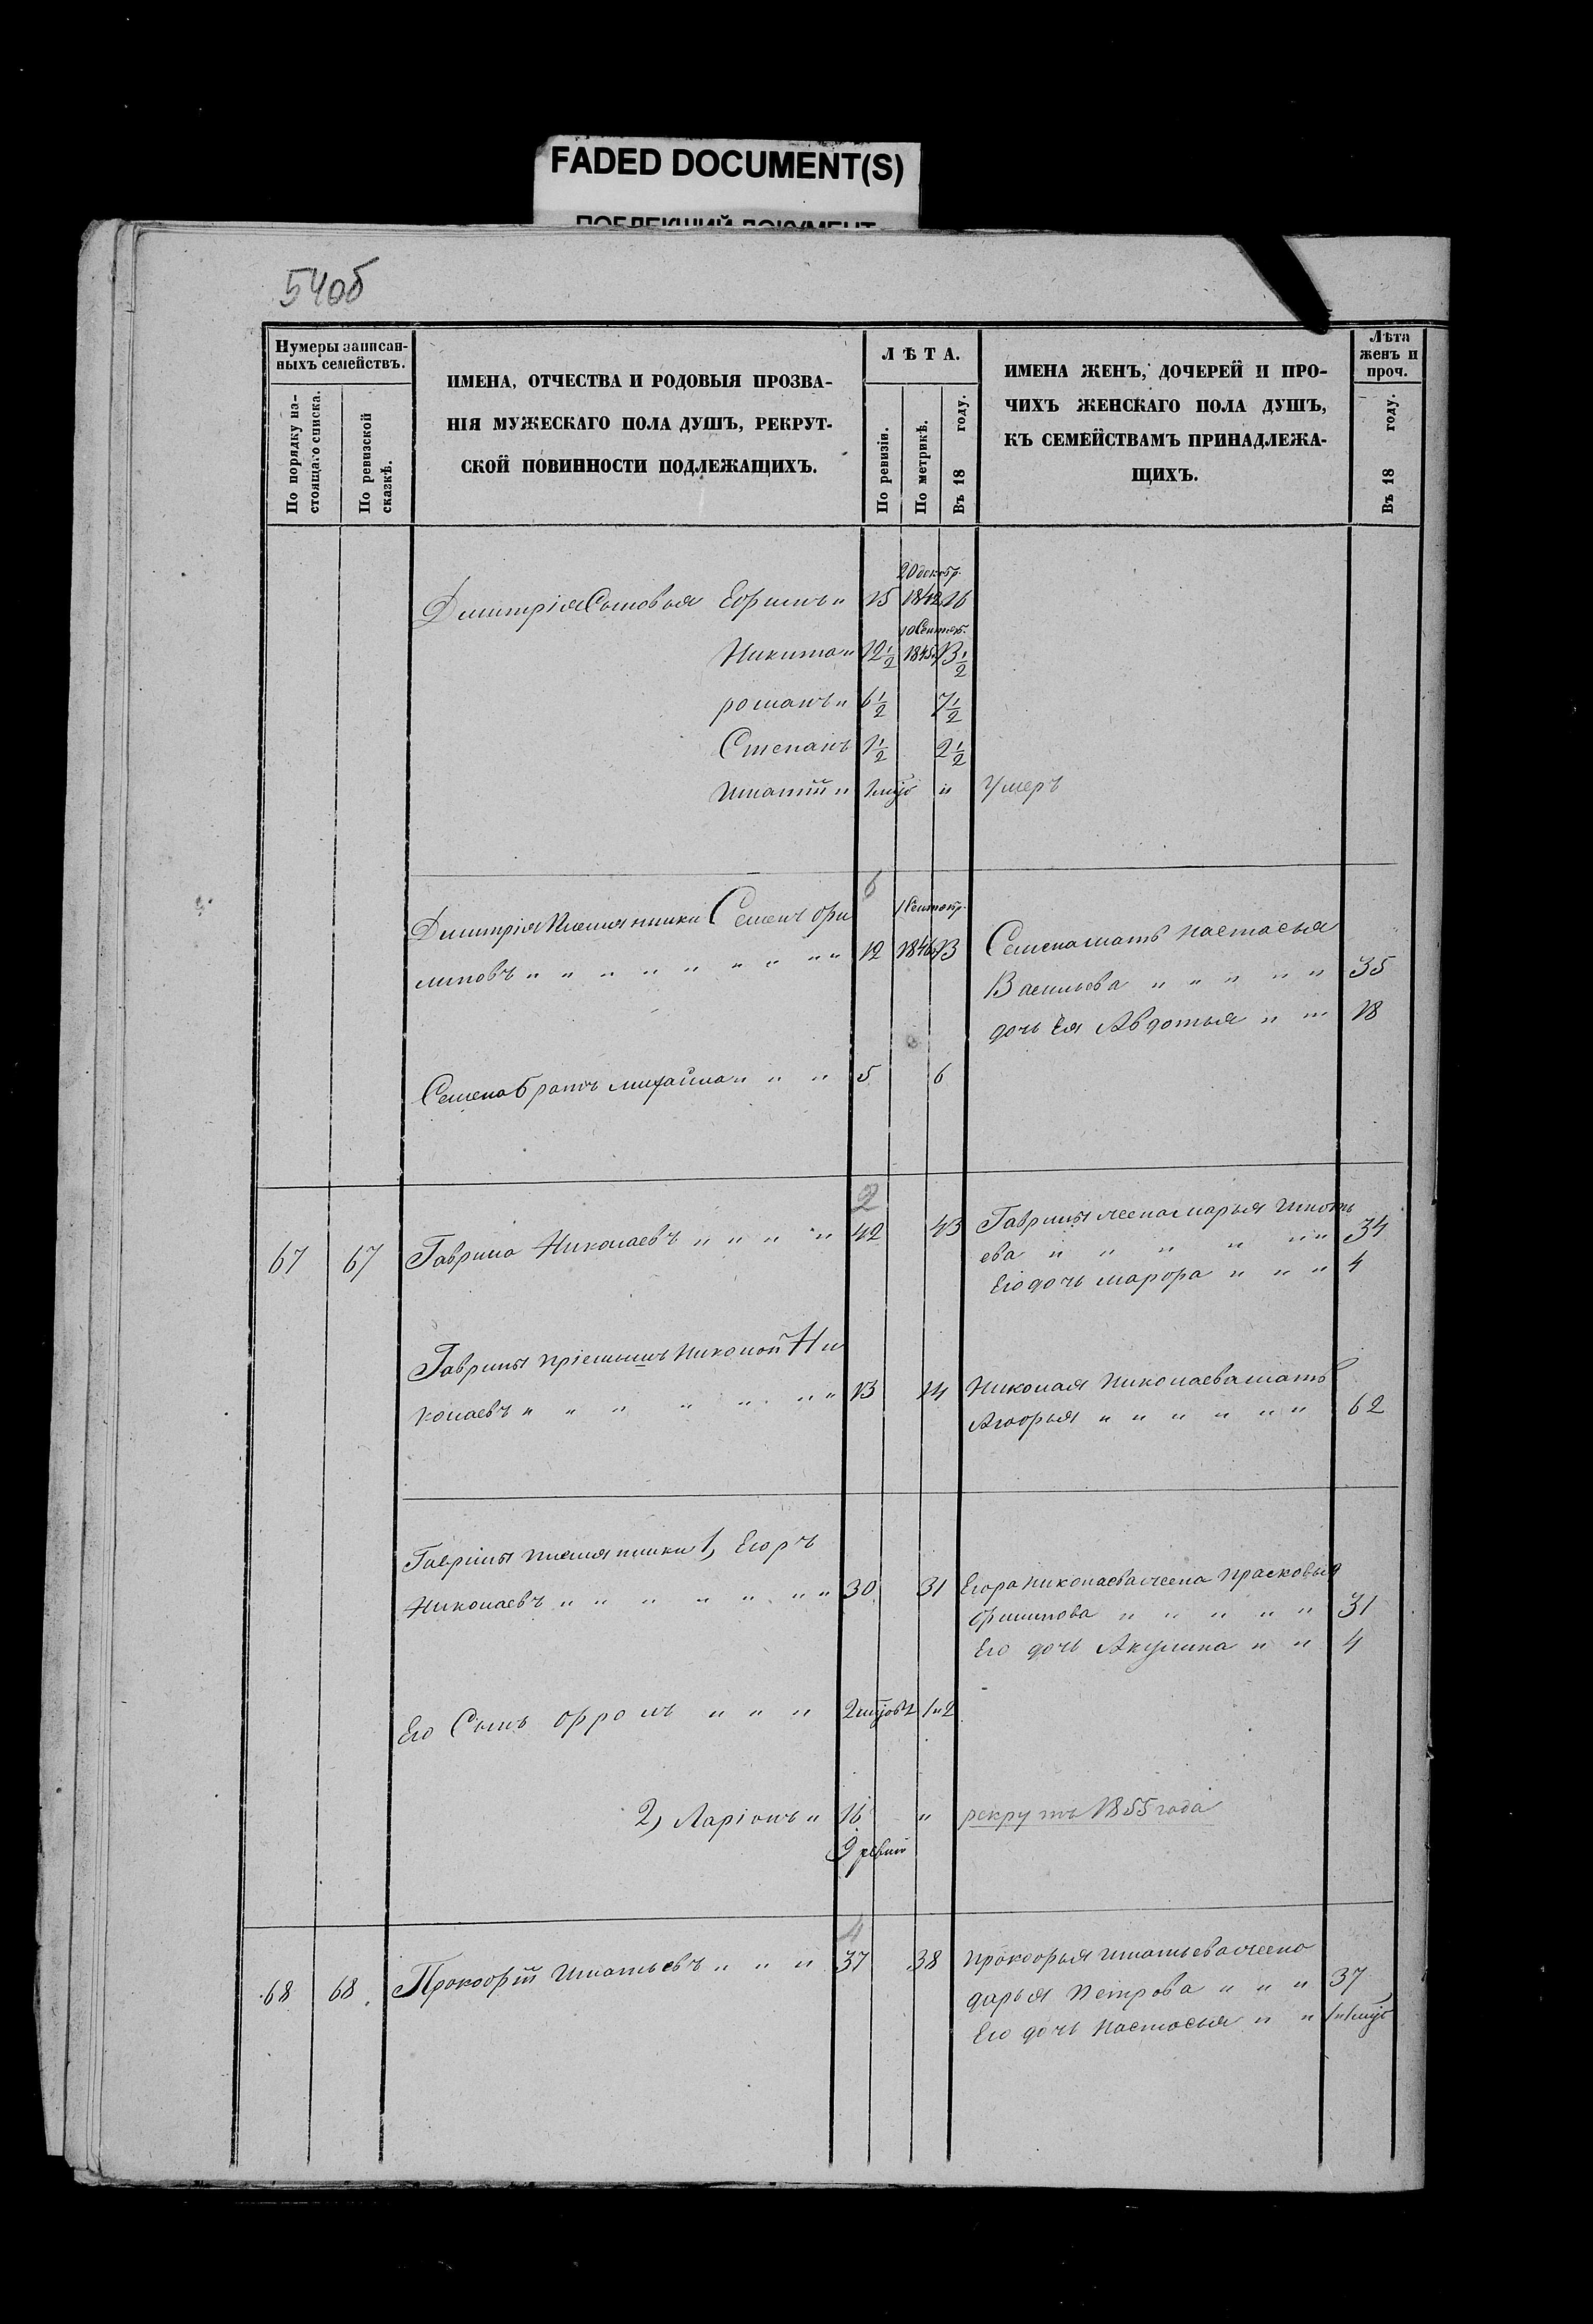 FADED DOCUMENT(S)
ПОБЛЕКШИЙ ДОКУМЕНТ
54об
Нумеры записан-
ныхъ семействъ.
По порядку на-
стоящаго списка.
По ревизской
сказкѣ.
ИМЕНА, ОТЧЕСТВА И РОДОВЫЯ ПРОЗВА-
НІЯ МУЖЕСКАГО ПОЛА ДУШЪ, РЕКРУТ-
СКОЙ ПОВИННОСТИ ПОДЛЕЖАЩИХЪ.
ЛѢТА.
По ревизіи.
По метрикѣ.
Въ 18 году.
ИМЕНА ЖЕНЪ, ДОЧЕРЕЙ И ПРО-
ЧИХЪ ЖЕНСКАГО ПОЛА ДУШЪ,
КЪ СЕМЕЙСТВАМЪ ПРИНАДЛЕЖА-
ЩИХЪ.
Лѣта
женъ и
проч.
Въ 18 году.
20 декабр.
Димитрія Сыновья Ефимъ " 15 1842 16
10 Сентяб.
Никита " 12 1/2 1845 13 1/2
романъ " 6 1/2 7 1/2
Степанъ 1 1/2 2 1/2
Игнатій " "  Умеръ
6
1 Сентябр.
Димитрія Племянники Семенъ Фи
липовъ " " " " " " " " " 12 1846 13
Семена мать настасья
Васильева " " " " " 35
дочь Ея Авдотья " " 18
Семена братъ михайла " " " 5 6
2
67 67 Гаврила Николаевъ " " " " 42 43
Гаврилы жена марья
ева " " " " " " 34
Его дочь марфа " " " 4
Гаврилы пріемышъ николай Ни
колаевъ " " " " " " " 13 14
Николая Николаева мать
" " " " " " 62
Гаврилы племянники 1, Егоръ
Николаевъ " " " " " " " 30 31
Егора николаева жена прасковья
Филипова " " " " " 31
Его дочь Акулина " " 4
Его Сынъ Фролъ " " "
2, Ларіонъ " 16 " рекрутъ 1855 года
9 ревиз
4
68 68. Прокофій Игнатьевъ " " " 37 38
прокофья игнатьева жена
дарья Петрова " " " 37
Его дочь настасья " "